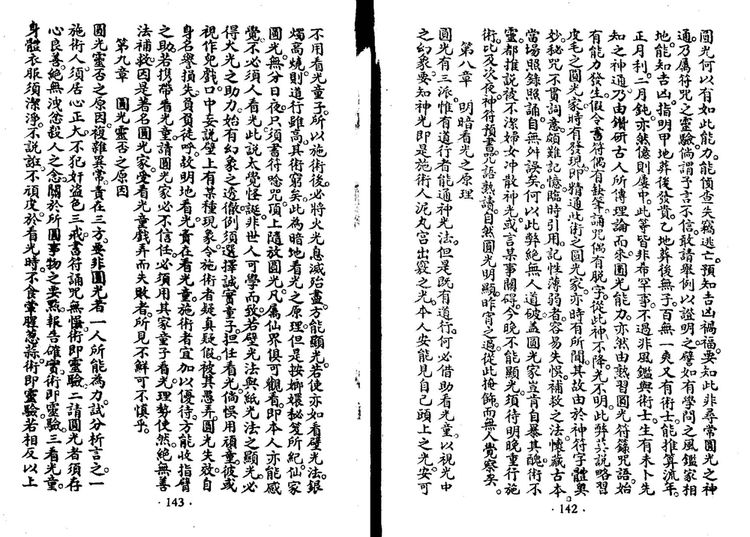 圓光何以有如此能力能偵查失竊逃亡預知吉凶禍福要知此非尋常圓光之神
通乃屬符咒之靈驗倘謂子言不信敢請舉例以證明之譬如有學問之風鑑家相
地能知吉凶指明甲地葬後發貲乙地葬後無子百無一爽又有術士能推算流年
正月利二月鈍亦然憶則屢中此等皆非布罕事不過非風鑑與術士生有未卜先
知之神通乃由鑽研古人所傳理論而來圓光能力亦然由熟習圓光符籙咒語始
有能力發生假令書符偶有敗筆誦咒偶有脫字從此神不降光不明此弊其説略習
皮毛之圓光家時有發現即精通此術之圓光家亦時有所聞其故由於神符字體奧
妙秘咒不貫詞意頗難記憶臨時引用記性薄弱者容易失悞補救之法懷藏古本
當場照錄照誦自無舛誤矣何以此弊絕無人道破蓋圓光家豈肯自暴其醜術不
靈都推説被不潔婦女冲散神光或言某事關碍今晚不能顯光須待明晚重行施
術比及次夜神符預畫咒語熟讀自然圓光明顯昨宵之過從此掩飾而無人覺察矣
第八章　明暗看光之原理
圓光有三派惟有道行者能通神光法但是既有道行何必借助看光童以視光中
之幻象要知神光即是施術人泥丸宫出竅之光本人安能見自己頭上之光安可
·142·
不用看光童子所以施術後必將火光息滅殆盡方能顯光若使亦如看壁光法銀
燭高燒則道行雖高其術窮矣此為暗地看光之原理但是按嫏嬛秘笈所紀仙家
圓光無分日夜只須書符唸咒頂上隨放圓光凡屬仙界俱可觀看即本人亦能感
覺不必須人看光此説太覺怪誕非世人可學而致若壁光法與紙光法之顯光必
得火光之助力始有幻象之透徹例須選擇誠實童子担任看光倘悞用頑童彼或
視作兒戲口中妄説壁上有某種現象令施術者疑真疑假被其愚弄圓光失效自
身名譽損失負負徒呼故明地看光貴在看光童施術者宜加以優待方能收指臂
之助若携帶看光童請圓光家必不信任必須用其家童子看光理勢使然絕無善
法補救因是著名圓光家受看光童戲弄而失敗者所見不鮮可不慎乎
第九章　圓光靈否之原因
圓光靈否之原因複雜異常貴在三方要非圓光者一人所能為力試分析言之一
施術人須居心正大不犯奸盜色三戒書符誦咒無慑術即靈驗二請圓光者須存
心良善絕無洩忿殺人之念關於所圓事物之要點報告確實術即靈驗三看光童
身體衣服須潔淨不説誑不頑皮於看光時不食葷腥葱蒜術即靈驗若相反以上
·143·